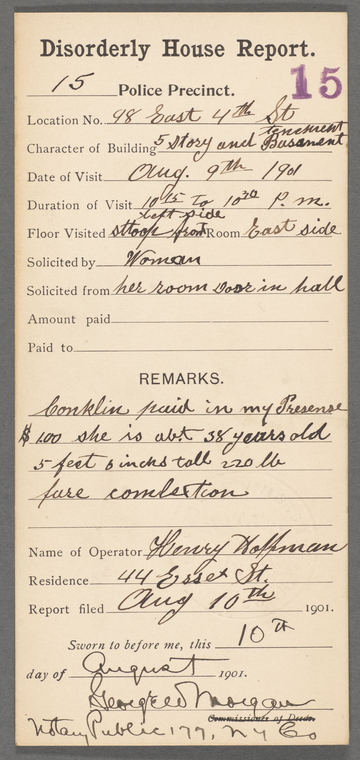 Disorderly House Report.
15
15 Police Precinct.
Location No. 98 East 4th St
tenement
Character of Building 5 story and Basement
Date of Visit Aug. 9th 1901
Duration of Visit 10 15 To 10 30 P. m.
left side
Floor Visited stoop front Room East side
Solicited by Woman
Solicited from her room Door in hall
Amount paid
Paid to
REMARKS.
Conklin paid in my Presense
$100 she is abt 38 years old
5 feet 6 inchs tall 220 lb
fare comlextion
Name of Operator Henry Hoffman
Residence 44 Essex St.
Report filed Aug 10th 1901.
Sworn to before me, this 10th
day of August 1901.
George W Morgan
Commissioner of Deeds.
Notary Public 177, NY Co